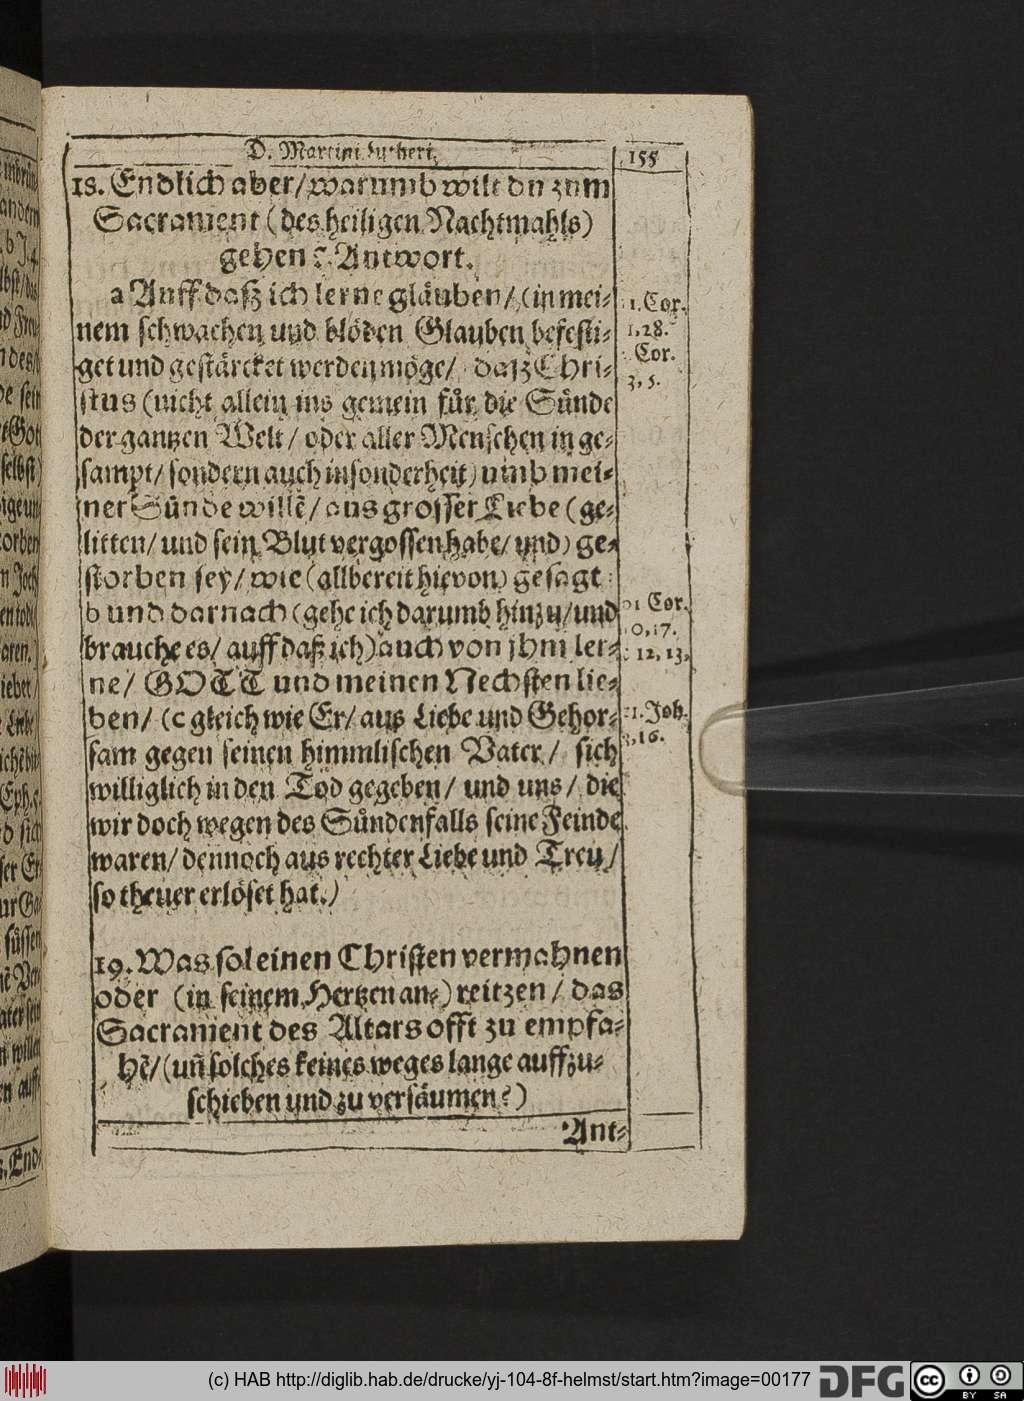 D. Martini Lutheri,
155
18. Endlich aber/warumb wilt du zum
Sacrament (des heiligen Nachtmahls)
gehen? Antwort.
a Auff daß ich lerne gläuben/(in mei-
nem schwachen und blöden Glauben befesti-
get und gestärcket werden möge/ daß Chri-
stus (nicht allein ins gemein für die Sünde
der gantzen Welt/ oder aller Menschen in ge-
sampt/ sondern auch insonderheit) umb mei-
ner Sünde willē/ aus grosser Liebe (ge-
litten/ und sein Blut vergossen habe/ und) ge-
storben sey/ wie (allbereit hievon) gesagt
b und darnach (gehe ich darumb hinzu/und
brauche es/ auff daß ich) auch von jhm ler-
ne/ GOTT und meinen Nechsten lie-
ben/ (c gleich wie Er/ aus Liebe und Gehor-
sam gegen seinen himmlischen Vater/ sich
williglich in den Tod gegeben/ und uns/ die
wir doch wegen des Sündenfalls seine Feinde
waren/ dennoch aus rechter Liebe und Treu/
so theuer erlöset hat.)
19. Was sol einen Christen vermahnen
oder (in seinem Hertzen an-) reitzen/ das
Sacrament des Altars offt zu empfa-
hē/(uñ solches keines weges lange auffzu-
schieben und zu versäumen?)
Ant-
1. Cor.
1,28.
Cor.
3, 5.
1 Cor.
0,17.
12, 13.
1. Joh.
3,16.
(c) HAB http://diglib.hab.de/drucke/yj-104-8f-helmst/start.htm?image=00177
DFG
cc
BY SA